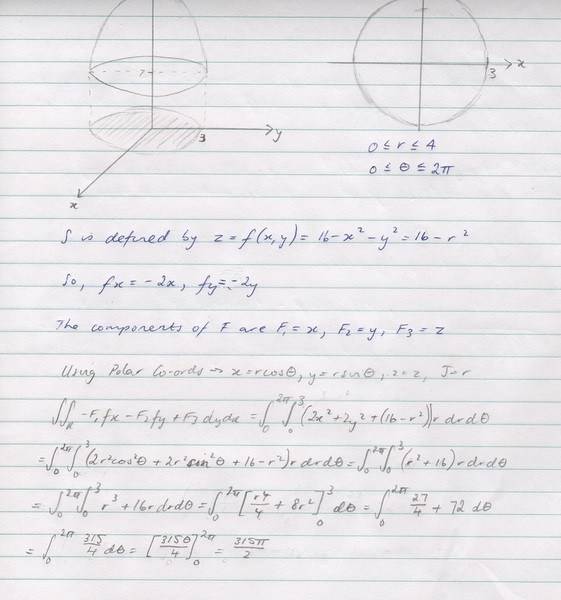 7
3
y
x
x
3
0 ≤ r ≤ 4
0 ≤ θ ≤ 2π
S is defined by z = f(x,y) = 16-x²-y² = 16-r²
So, fx = -2x, fy = -2y
The components of F are F₁=x, F₂=y, F₃=z
Using Polar Co-ords → x=rcosθ, y=rsinθ, z=z, J=r
∬_R -F₁fx-F₂fy+F₃dydx = ∫₀^2π ∫₀³ (2x²+2y²+(16-r²))r drdθ
= ∫₀^2π ∫₀³ (2r²cos²θ + 2r²sin²θ + 16-r²)r drdθ = ∫₀^2π ∫₀³ (r²+16)r drdθ
= ∫₀^2π ∫₀³ r³+16r drdθ = ∫₀^2π [r⁴/4 + 8r²]₀³ dθ = ∫₀^2π 27/4 + 72 dθ
= ∫₀^2π 315/4 dθ = [315θ/4]₀^2π = 315π/2